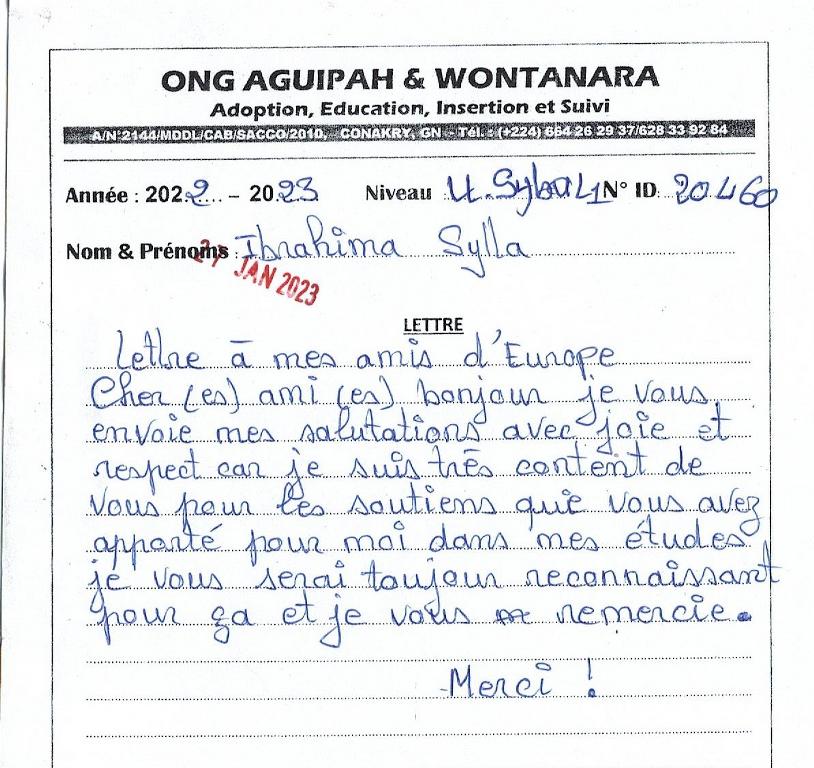 ONG AGUIPAH & WONTANARA
Adoption, Education, Insertion et Suivi
A/N°2144/MDDL/CAB/SACCO/2010, CONAKRY, GN - Tél. : (+224) 664 26 29 37/628 33 92 84
Année : 2022 – 2023 Niveau : N° ID 20460
Nom & Prénoms : Ibrahima Sylla
27 JAN 2023
LETTRE
Lettre à mes amis d'Europe
Cher (es) ami (es) bonjour je vous
envoie mes salutations avec joie et
respect car je suis très content de
vous pour les soutiens que vous avez
apporté pour moi dans mes études
je vous serai toujour reconnaissant
pour ça et je vous remercie.
Merci !